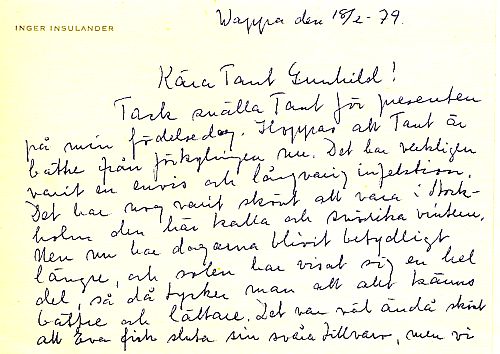 INGER INSULANDER
Wappa den 18/2-79.
Kära Tant Gunhild!
Tack snälla Tant för presenten
på min födelsedag. Hoppas att Tant är
bättre från förkylningen nu. Det har verkligen
varit en envis och långvarig infektion.
Det har nog varit skönt att vara i Stock-
holm den här kalla och snörika vintern.
Men nu har dagarna blivit betydligt
längre, och solen har visat sig en hel
del, så då tycker man att allt känns
bättre och lättare. Det var väl ändå skönt
att Eva fick sluta sin svåra tillvaro, men vi